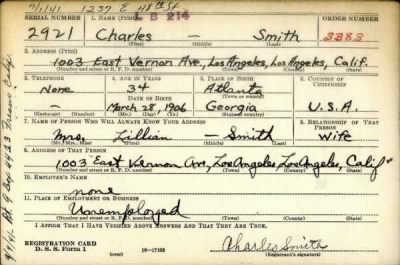 7/1/41 1237 E 48th St
SERIAL NUMBER 1. NAME (Print) B 214 ORDER NUMBER
2921 Charles — Smith 3383
(First) (Middle) (Last)
2. ADDRESS (Print)
1003 East Vernon Ave., Los Angeles, Los Angeles, Calif.
(Number and street or R. F. D. number) (Town) (County) (State)
3. TELEPHONE 4. AGE IN YEARS 5. PLACE OF BIRTH 6. COUNTRY OF CITIZENSHIP
None 34 Atlanta
DATE OF BIRTH (Town or county)
— March 28, 1906 Georgia U.S.A.
(Exchange) (Number) (Mo.) (Day) (Yr.) (State or country)
7. NAME OF PERSON WHO WILL ALWAYS KNOW YOUR ADDRESS 8. RELATIONSHIP OF THAT PERSON
Mrs. Lillian — Smith Wife
(Mr., Mrs., Miss) (First) (Middle) (Last)
9. ADDRESS OF THAT PERSON
1003 East Vernon Ave, Los Angeles, Los Angeles, Calif.
(Number and street or R. F. D. number) (Town) (County) (State)
10. EMPLOYER'S NAME
none
11. PLACE OF EMPLOYMENT OR BUSINESS
Unemployed
(Number and street or R. F. D. number) (Town) (County) (State)
I AFFIRM THAT I HAVE VERIFIED ABOVE ANSWERS AND THAT THEY ARE TRUE.
REGISTRATION CARD
D. S. S. Form 1 (over) 16—17105 Charles Smith
(Registrant's signature)
Box 4423 Fresno Calif